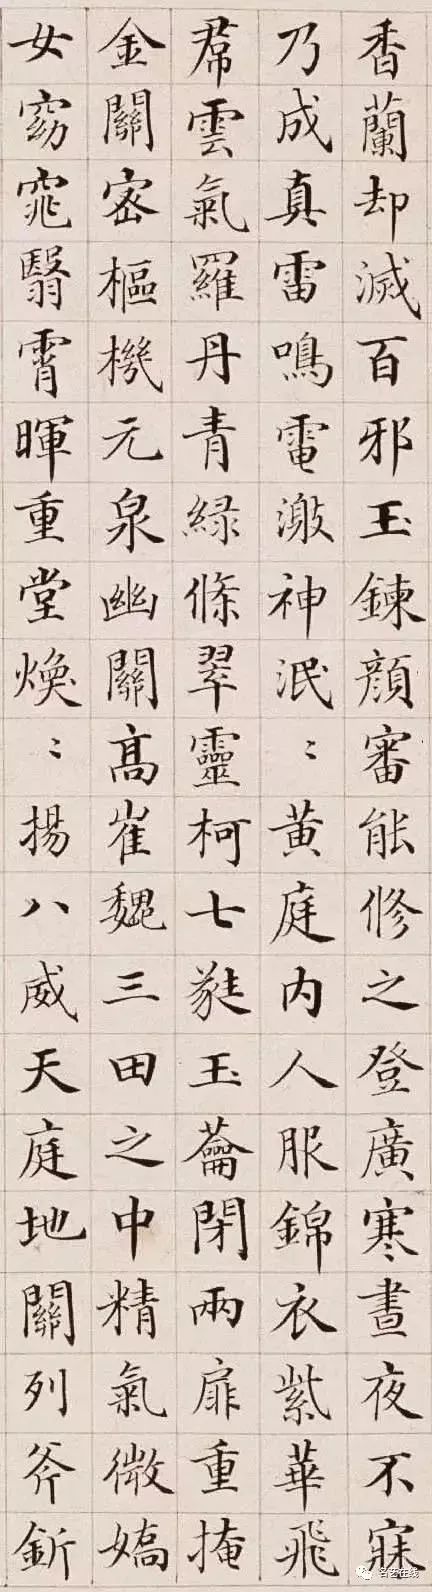 香蘭却滅百邪玉鍊顔審能修之登廣寒晝夜不寐
乃成真雷鳴電激神泯〻黄庭内人服錦衣紫華飛
帬雲氣羅丹青緑條翠靈柯七蕤玉蘥閉兩扉重掩
金關密樞機元泉幽關高崔巍三田之中精氣微嬌
女窈窕翳霄暉重堂煥〻揚八威天庭地關列斧釿
名艺在线